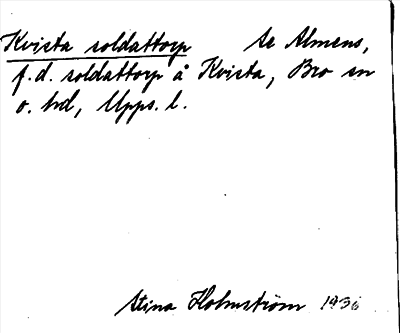 Kvista soldattorp Se Almens,
f.d. soldattorp å Kvista, Bro sn
o. hd, Upps. l.
Stina Holmström 1936